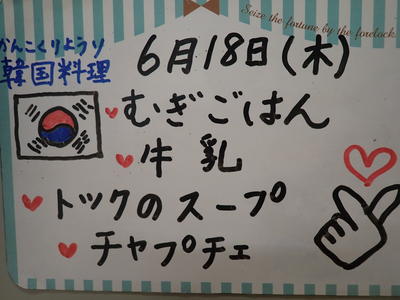 Seize the fortune by the forelock.
かんこくりようり
韓国料理
6月18日(木)
むぎごはん
牛乳
トックのスープ
チャプチェ